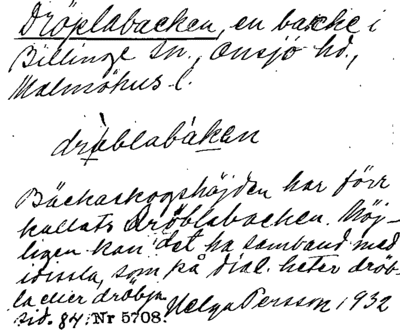 Dröplabacken, en backe i
Billinge sn., Onsjö hd.,
Malmöhus l.
dröblabaken
Bäckaskogshöjden har förr
kallats Dröblabacken. Möj-
ligen kan det ha samband med
idissla, som på dial. heter dröb-
la eller dröbja
sid. 84. Nr 5708. Helga Persson 1932